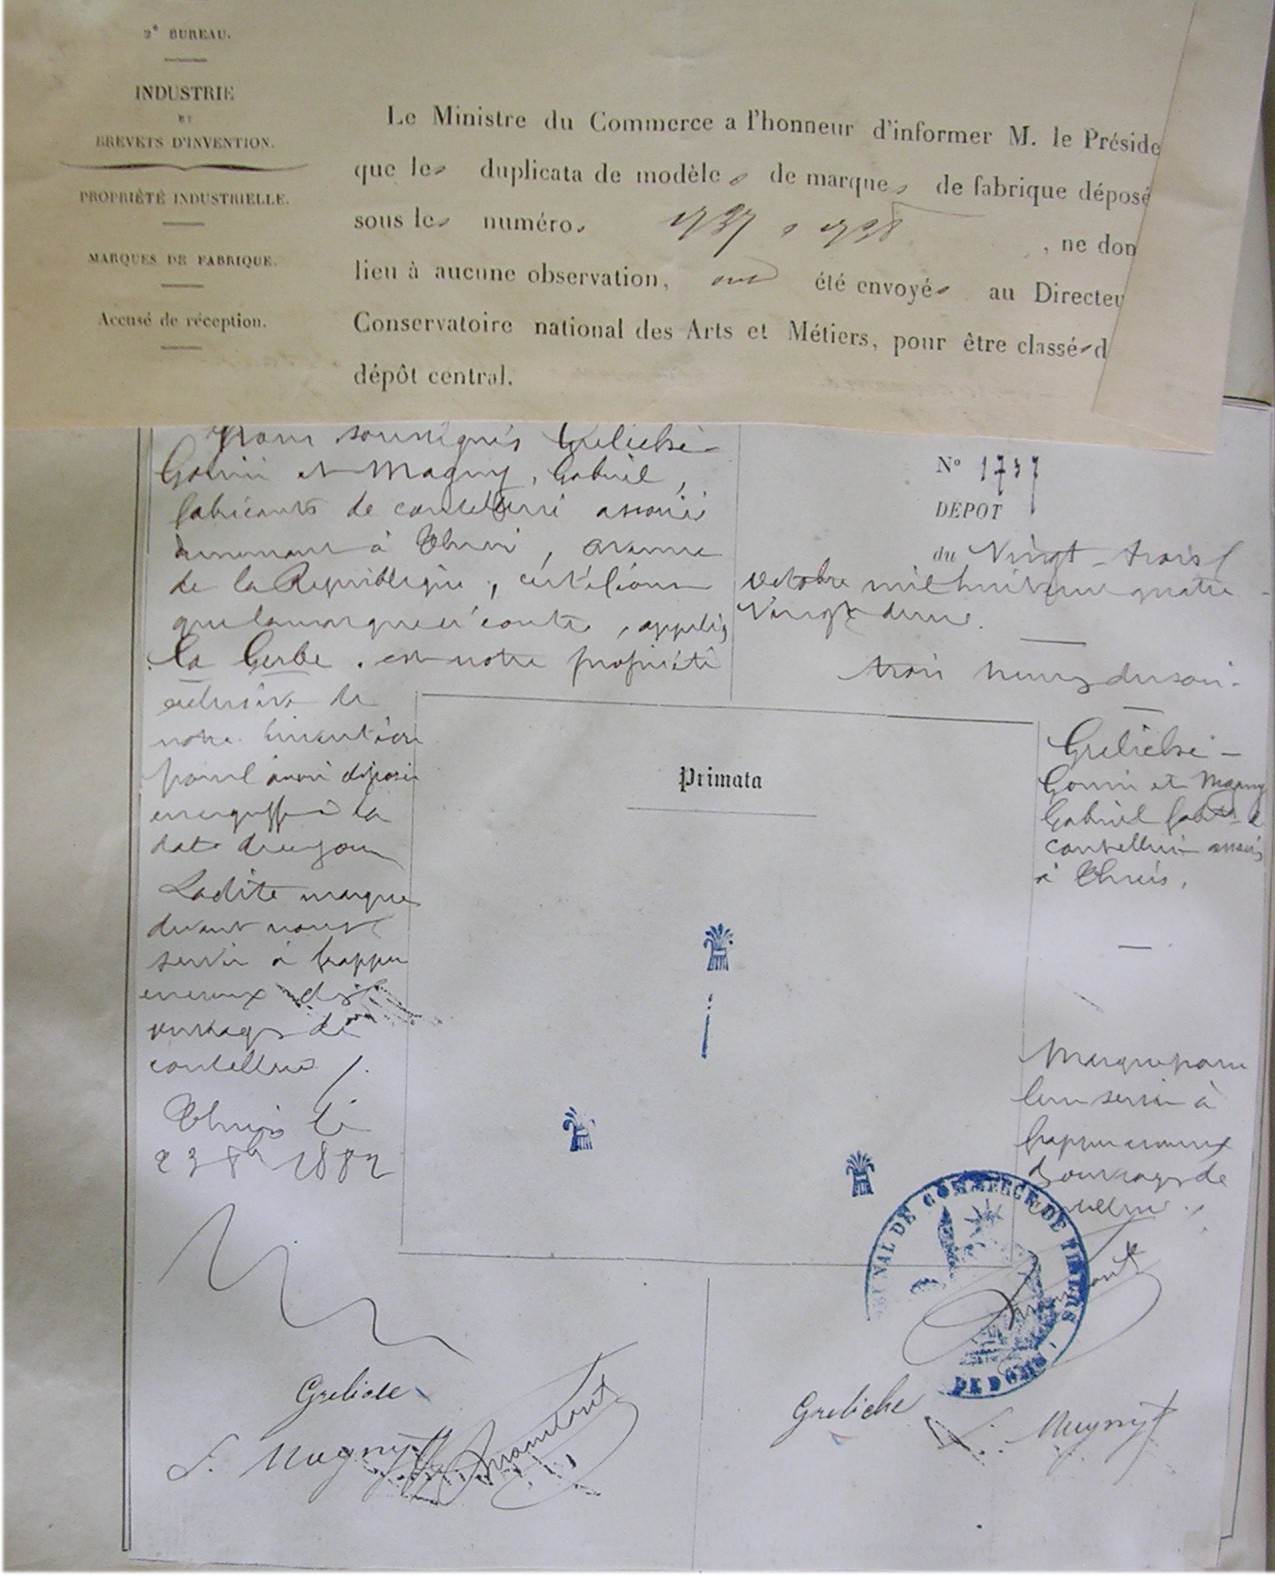 2e BUREAU.
INDUSTRIE
ET
BREVETS D'INVENTION.
PROPRIÉTÉ INDUSTRIELLE.
MARQUES DE FABRIQUE.
Accusé de réception.
Le Ministre du Commerce a l'honneur d'informer M. le Préside
que les duplicata de modèles de marques de fabrique déposé
sous les numéros 1737 1738 , ne don
lieu à aucune observation, ont été envoyés au Directeu
Conservatoire national des Arts et Métiers, pour être classés d
dépôt central.
Nous soussignés Greliche
Gonin et Magny, Gabriel,
fabricants de coutellerie associés
demeurant à Thiers, avenue
de la République, certifions
que la marque ci contre, appelée
La Gerbe. est notre propriété
exclusive de
notre invention
pour l'avoir déposée
au greffe à la
date de ce jour
Ladite marque
devant nous
servir à frapper
ouvrages de
coutellerie
Thiers le
23 8bre 1882
No 1737
DÉPOT
du Vingt-trois
octobre mil huit cent quatre
vingt deux.
trois heures du soir.
Greliche-
Gonin et Magny
Gabriel fabts de
coutellerie associés
à Thiers.
Primata
Marque pour
leur servir à
frapper
d'ouvrages de
coutellerie.
TRIBUNAL DE COMMERCE DE THIERS
PUY DE DOME
Greliche
Greliche
G. Magny
G. Magny